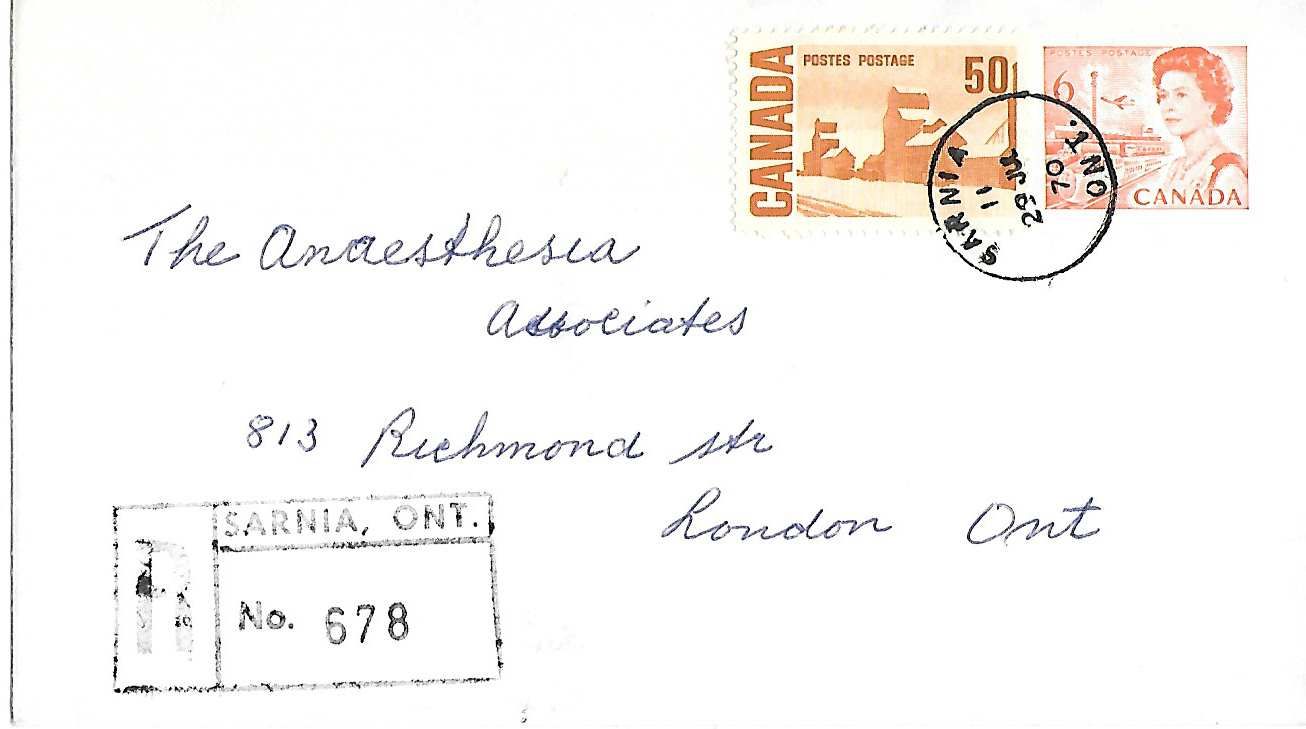 CANADA
POSTES POSTAGE
50
POSTES POSTAGE
6
CANADA
SARNIA
11
29 JUL
70
ONT.
The Anaesthesia
Associates
813 Richmond str
London Ont
R
SARNIA, ONT.
No. 678